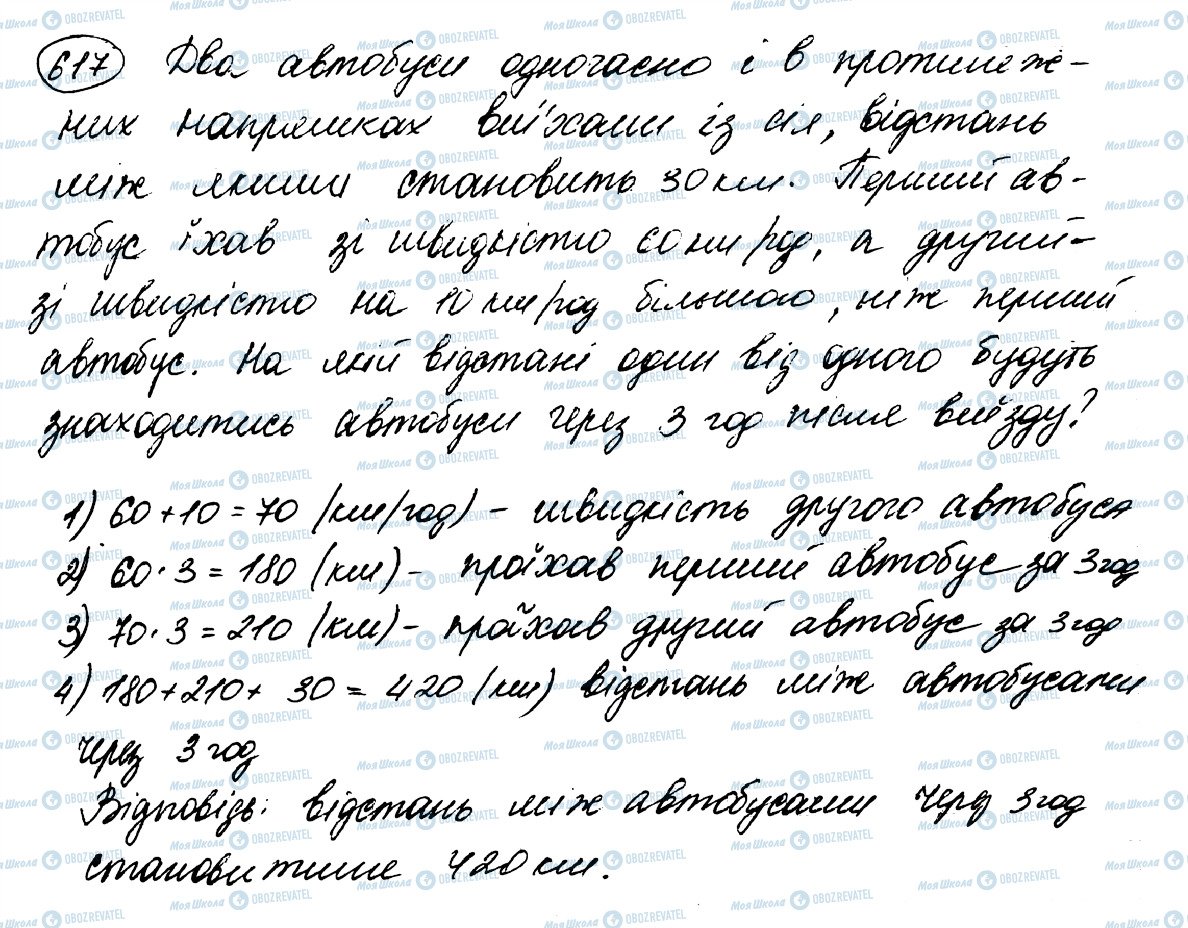 617 Два автобуси одночасно і в протилеж-
них напрямках виїхали із сіл, відстань
між якими становить 30 км. Перший ав-
тобус їхав зі швидкістю 60 км/год, а другий -
зі швидкістю на 10 км/год більшою, ніж перший
автобус. На якій відстані один від одного будуть
знаходитись автобуси через 3 год після виїзду?
1) 60 + 10 = 70 (км/год) - швидкість другого автобуса
2) 60 · 3 = 180 (км) - проїхав перший автобус за 3 год
3) 70 · 3 = 210 (км) - проїхав другий автобус за 3 год
4) 180 + 210 + 30 = 420 (км) відстань між автобусами
через 3 год
Відповідь: відстань між автобусами через 3 год
становитиме 420 км.